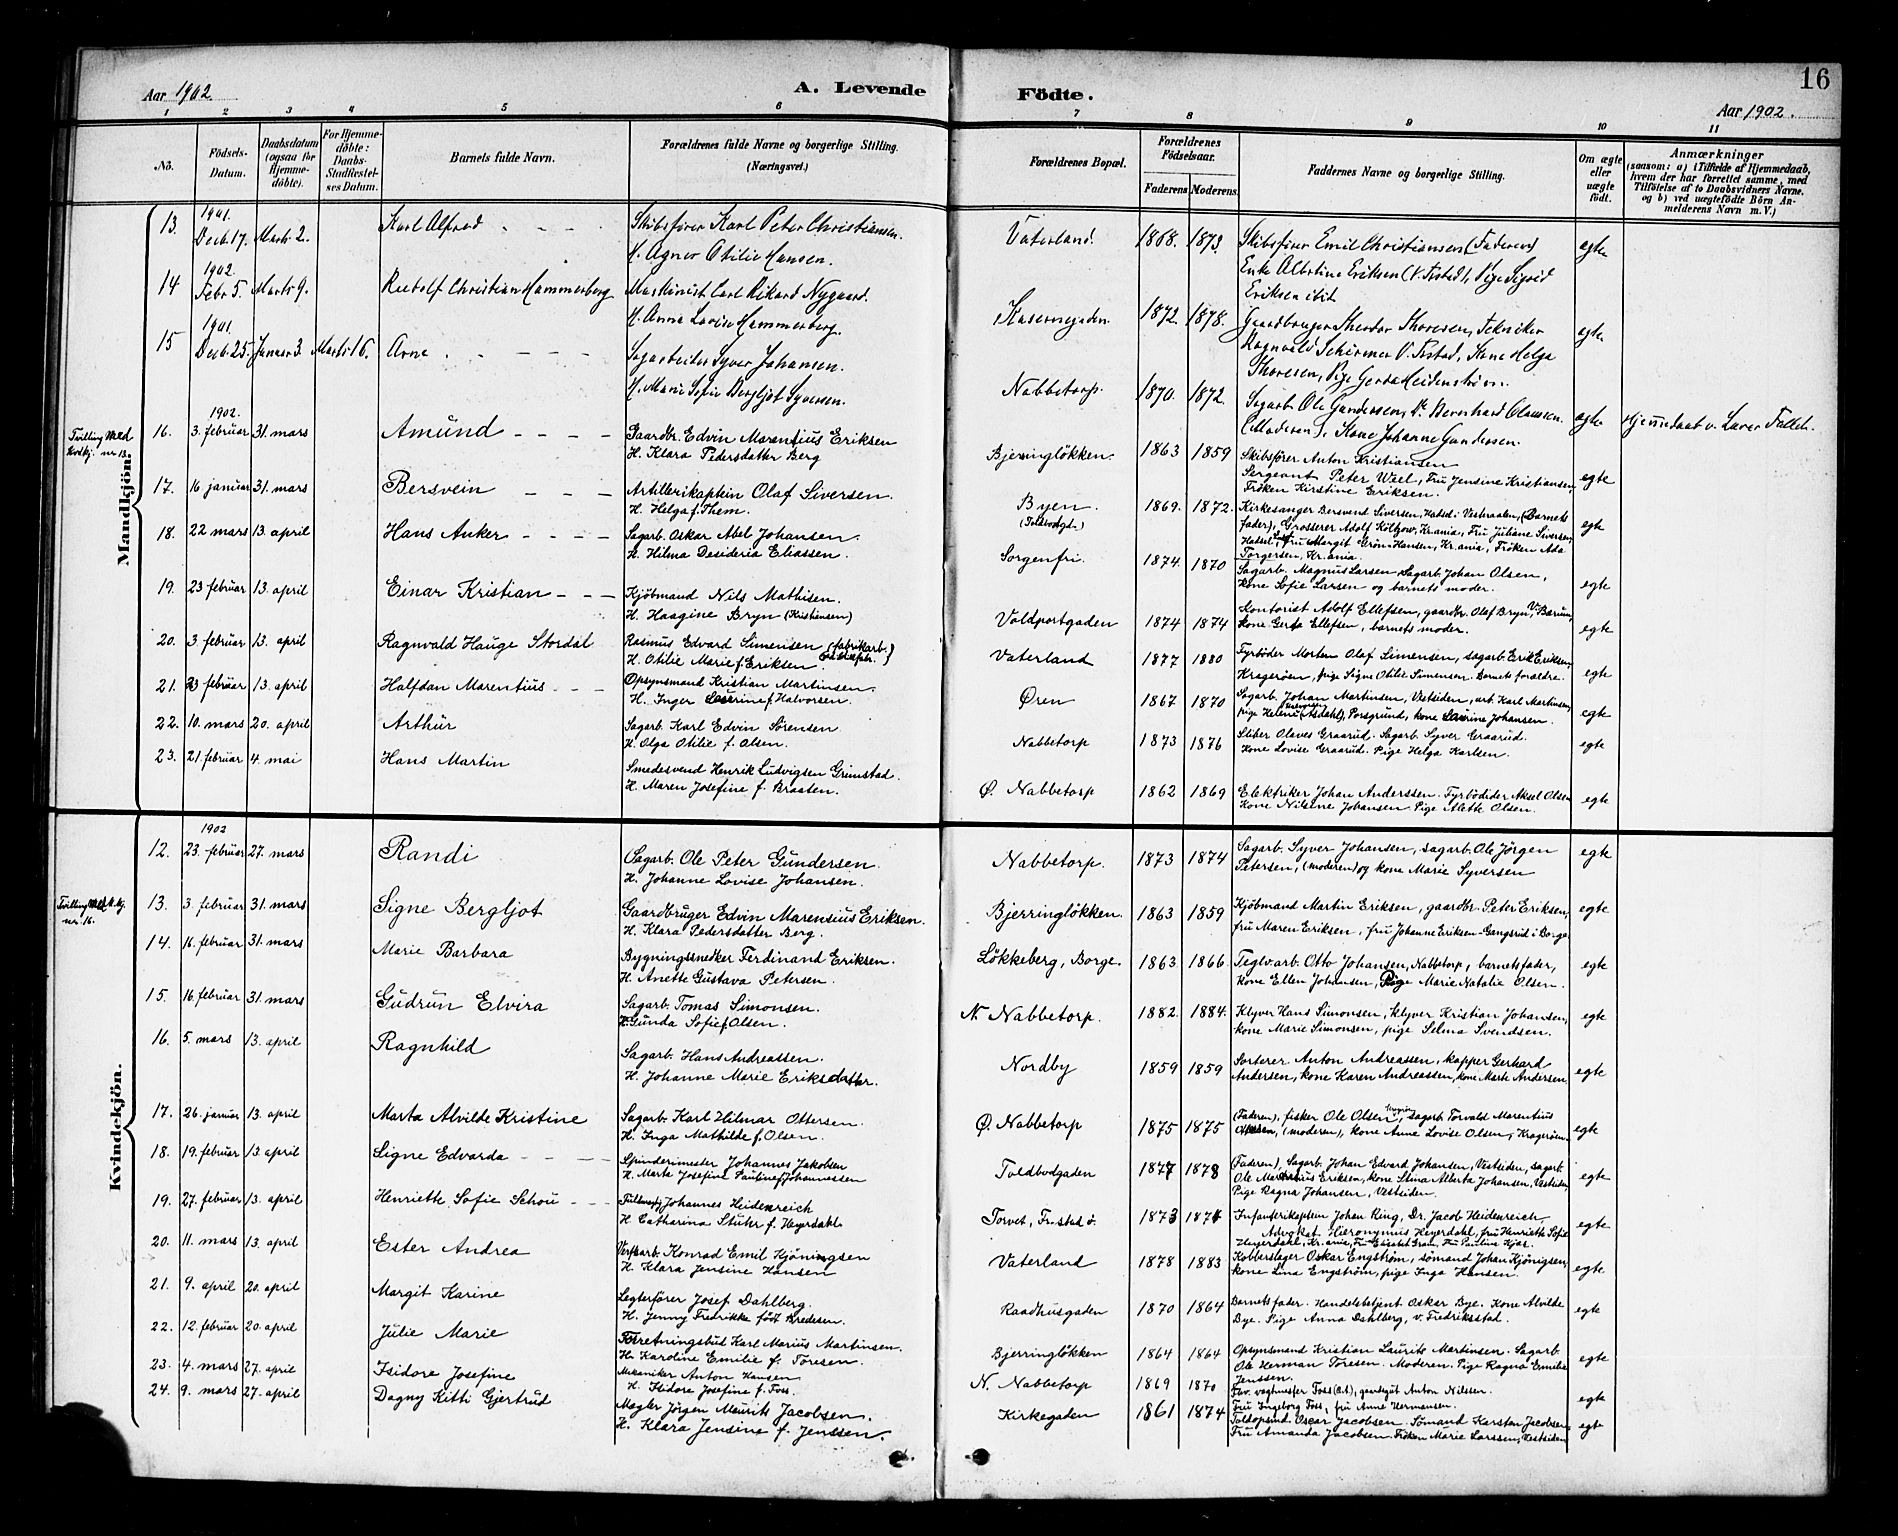 16
Aar 1902.
A. Levende
Födte.
Aar 1902.
1 2 3 4 5 6 7 8 9 10 11
No.
Födsels-Datum.
Daabsdatum (ogsaa for Hjemme-döbte).
For Hjemme-döbte: Daabs-Stadfæstel-ses Datum.
Barnets fulde Navn.
Forældrenes fulde Navne og borgerlige Stilling. (Næringsvei.)
Forældrenes Bopæl.
Forældrenes Födselsaar.
Faderens Moderens.
Faddernes Navne og borgerlige Stilling.
Om ægte eller uægte født.
Anmærkninger
(saasom: a) i Tilfælde af Hjemmedaab, hvem der har forrettet samme, med Tilföielse af to Daabsvidners Navne, og b) ved uægtefödte Börn An-melderens Navn m. V.)
Mandkjön.
13. 1901. Decb. 17. Marts 2. Karl Alfred Skibsfører Karl Peter Christiansen. Vaterland. 1868. 1873. Skibsfører Emil Christiansen (Faderen) egte
H. Agnes Otilie Hansen. Enke Albertine Eriksen (V. Frstad), Pige Sigrid
Eriksen
14 1902. Febr 5. Marts 9. Rudolf Christian Hammerberg Maskinist Carl Rikard Nygaard. Kasernegaden 1872. 1878. Gaardbruger Theodor Thoresen, Tekniker egte
H. Anna Lovise Hammerberg. Ragnvald Schirmer V. Frstad, Kone Helga
Thoresen, Pige Gerda Heidenström.
15 1901. Decb. 25. Januar 3. Marts 16. Arne Sagarbeider Syver Johansen. Nabbetorp. 1870. 1872. Sagarb. Ole Gundersen, Do. Bernhard Olaussen egte Hjemmedaab v. Lærer
H. Marie Sofie Bergljot Syversen. (Moderen), Kone Johanne Gundersen.
Tvilling med kvdkj. nr. 13.
16. 1902. 3. februar 31. mars Amund Gaardbr. Edvin Marentius Eriksen Bjerringløkken. 1863 1859 Skibsfører Anton Kristiansen
H. Klara Pedersdatter Berg Sergeant Peter Weel, Fru Jensine Kristiansen,
Frøken Kirstine Eriksen. egte
17. 16 januar 31. mars Bersvein Artillerikaptein Olaf Siversen. Byen. (Toldbodgt.) 1869. 1872. Kirkesanger Bersvend Siversen, Hadsel i Vesteraalen, (Barnets
H. Helga f. Them. fader), Grosserer Adolf Költzow, Kr.ania, Fru Juliane Siversen, egte
Hadsel, Fru Margit Grön-Hansen, Kr.ania, Frøken Ada
Torgersen, Kr.ania.
18. 22 mars 13. april Hans Anker Sagarb. Oskar Abel Johansen. Sorgenfri. 1874. 1870 Sagarb. Magnus Larsen, Sagarb. Johan Olsen,
H. Hilma Desideria Eliassen. Kone Sofie Larsen og barnets moder. egte
19. 23 februar 13. april Einar Kristian Kjöbmand Nils Mathisen. Voldportgaden 1874 1874 Kontorist Adolf Ellefsen, gaardbr. Olaf Bryn, V. Bærum,
H. Haagine Bryn (Kristiansen) Kone Gerda Ellefsen, barnets moder. egte
20. 3. februar 13. april Ragnvald Hauge Stordal Rasmus Edvard Simensen (fabrikarb. Vaterland 1877 1880 Fyrbøder Morten Olaf Simensen, sagarb. Erik Eriksen,
H. Otilie Marie f. Eriksen Kragerøen, pige Signe Otilie Simensen. Barnets forældre. egte
21. 23 februar 13. april Halfdan Marentius Opsynsmand Kristian Martinsen. Øren 1867 1870 Sagarb. Johan Martinsen, Vestsiden, arb. Karl Martinsen,
H. Inger Laurine f. Halvorsen. pige Helene (Asdahl), Porsgrund, kone Laurine Johansen. egte
22. 10. mars 20. april Arthur Sagarb. Karl Edvin Sørensen Nabbetorp 1873 1876 Sliber Olaves Graarud. Sagarb. Syver Graarud.
H. Olga Otilie f. Olsen. Kone Lovise Graarud. Pige Helga Karlsen. egte
23. 21. februar 4. mai Hans Martin Smedesvend Henrik Ludvigsen Grimstad. Ø. Nabbetorp 1862 1869 Elektriker Johan Anderssen. Fyrbödider Aksel Olsen
H. Maren Josefine f. Braaten. Kone Nilsine Johansen. Pige Alette Olsen. egte
Kvindekjön.
12. 1902 23. februar 27. mars Randi Sagarb. Ole Peter Gundersen. Nabbetorp. 1873 1874 Sagarb. Syver Johansen, sagarb. Ole Jörgen egte
H. Johanne Lovise Johansen. Petersen, (moderen) og kone Marie Syversen
Tvilling med M.kj. nr. 16.
13. 3. februar 31. mars Signe Bergljot Gaardbruger Edvin Marensius Eriksen. Bjerringløkken. 1863 1859 Kjöbmand Martin Eriksen, gaardbr. Peter Eriksen, egte
H. Klara Pedersdatter Berg. fru Maren Eriksen, fru Johanne Eriksen-Gangsrud i Borge.
14. 16. februar 31. mars Marie Barbara Bygningssnedker Ferdinand Eriksen. Løkkeberg, Borge. 1863 1866. Teglvarb. Otto Johansen, Nabbetorp, barnets fader, egte
H. Anette Gustava Petersen. Kone Ellen Johansen, Pige Marie Natalie Olsen.
15. 16. februar 31. mars Gudrun Elvira Sagarb. Tomas Simonsen. N. Nabbetorp. 1882. 1884. Klyver Hans Simonsen, klyver Kristian Johansen, egte
H. Gunda Sofie f. Olsen. kone Marie Simonsen, pige Selma Svendsen.
16. 5. mars 13. april Ragnhild Sagarb. Hans Andreassen. Nordby 1859 1859 Sorterer Anton Andreassen, kapper Gerhard egte
H. Johanne Marie Eriksdatter. Andersen, kone Karen Andreassen, kone Marte Andersen.
17. 26. januar 13. april Marta Alvilde Kristine Sagarb. Karl Hilmar Ottersen. Ø. Nabbetorp 1875 1875 (Faderen), fisker Ole Olsen, sagarb. Torvald Marentius
H. Inga Mathilde f. Olsen. Ottersen, (moderen), kone Anne Lovise Olsen, Kragerøen. egte
18. 19. februar 13. april Signe Edvarda Spinderimester Johannes Jakobsen Toldbodgaden 1877 1878 (Faderen), Sagarb. Johan Edvard Johansen, Vestsiden, sagarb.
H. Marte Josefine Pauline f. Johannessen Ole Martinius Eriksen, kone Stina Alberta Johansen, Vestsiden, egte
Pige Ragna Johansen, Vestsiden.
19. 27. februar 13. april Henriette Sofie Schou Johannes Heidenreich Torvet, Fr.stad ö. 1873 1874 Infanterikaptein Johan Ring, Dr. Jacob Heidenreich
H. Catharina Stuhr f. Heyerdahl Advokat Hieronymus Heyerdahl, fru Henriette Sofie egte
Heyerdahl, Kr.ania, Fru Elisabet Gram, Fru Pauline Kjær.
20. 11. mars 13. april Ester Andrea Verftsarb. Konrad Emil Kjöningsen Vaterland 1878 1883 Kobberslager Oskar Engström, sömand Johan Kjönigsen,
H. Klara Jensine Hansen kone Lina Engström, pige Inga Hansen. egte
21. 9. april 20. april Margit Karine Legterfører Josef Dahlberg. Raadhusgaden 1870 1864 Barnets fader. Handelsbetjent Oskar Bye. Kone Alvilde
H. Jenny Fredrikke født Bredesen. Bye. Pige Anna Dahlberg, v. Fredriksstad. egte
22. 12. februar 20. april Julie Marie Forretningsbud Karl Marius Martinsen. Bjerringløkken 1864 1864 Opsynsmand Kristian Laurits Martinsen. Sagarb.
H. Karoline Emilie f. Toresen. Ole Herman Toresen. Moderen. Pige Ragna Emilie egte
Jenssen.
23. 4. mars 27. april Isidore Josefine Mekaniker Anton Hansen N. Nabbetorp 1869 1870 Foss (O.t.), gaardgut Anton Nilssen.
H. Isidore Josefine f. Foss. Fru Ingeborg Foss, fru Anne Hermansen. egte
24. 9. mars 27. april Dagny Kitti Gjertrud Megler Jörgen Maurits Jacobsen. Kirkegaden 1861 1874 Toldopsmd. Oscar Jacobsen. Sömand Karsten Jacobsen
H. Klara Jensine f. Jenssen. Fru Amanda Jacobsen. Frøken Marie Larssen, Vestsiden. egte